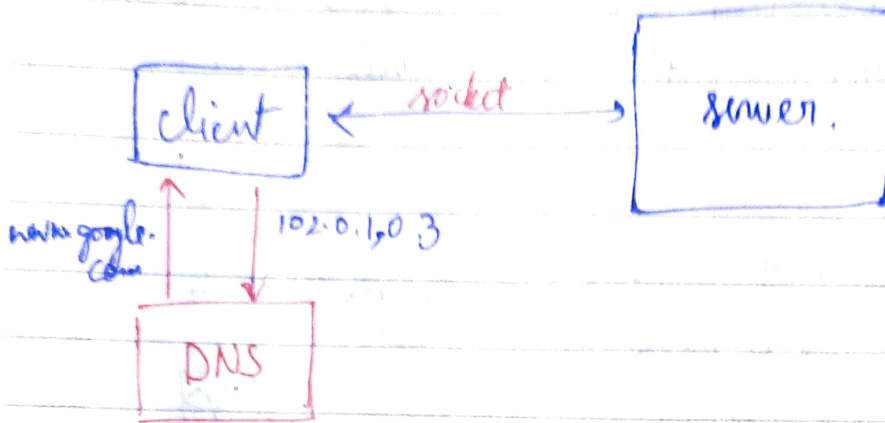 client
socket
server.
www.google.
com
102.0.1,0.3
DNS